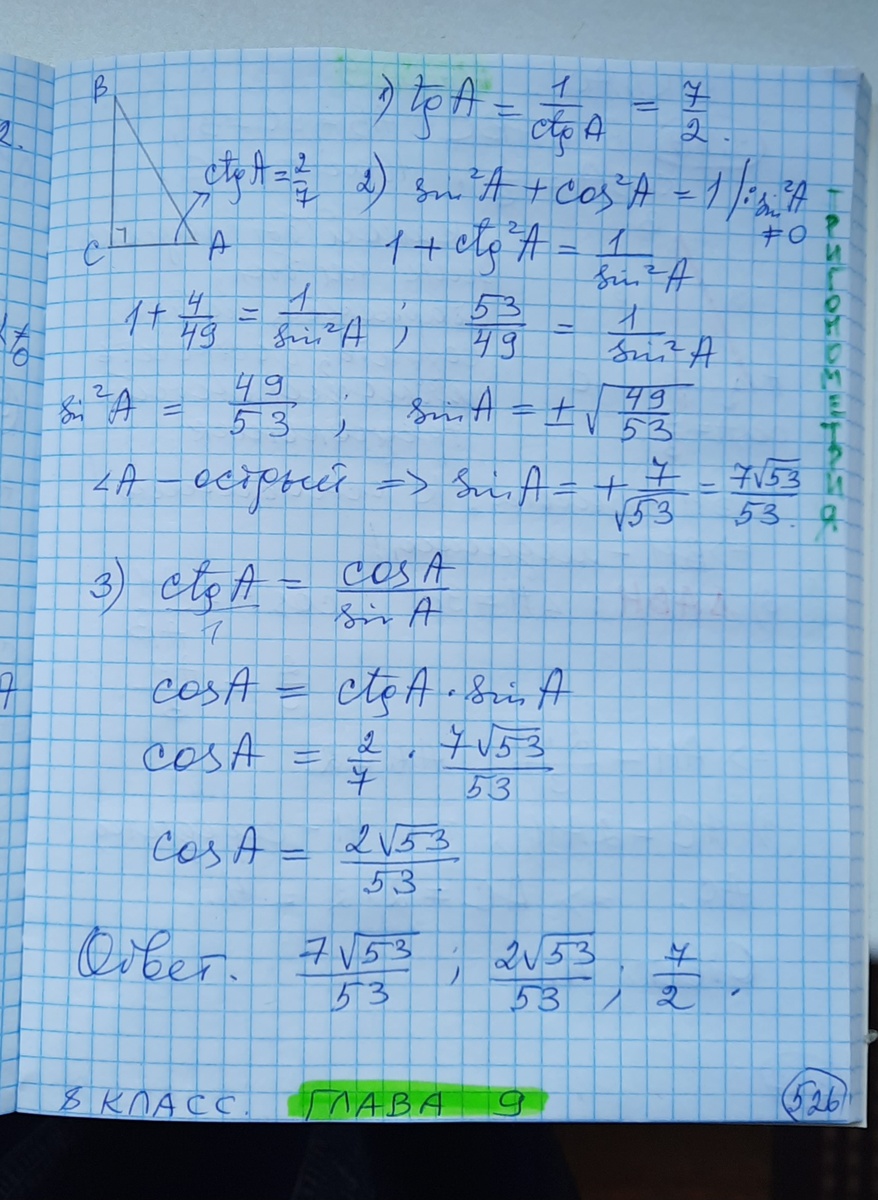 B
C
A
ctgA = 2/7
1) tgA = 1/ctgA = 7/2.
2) sin²A + cos²A = 1 |: sin²A ≠ 0
1 + ctg²A = 1/sin²A
1 + 4/49 = 1/sin²A ; 53/49 = 1/sin²A
sin²A = 49/53 ; sinA = ±√(49/53)
∠A – острый => sinA = + 7/√53 = 7√53/53.
3) ctgA/1 = cosA/sinA
cosA = ctgA · sinA
cosA = 2/7 · 7√53/53
cosA = 2√53/53.
Ответ. 7√53/53 ; 2√53/53 ; 7/2 .
8 КЛАСС. ГЛАВА 9 526
ТРИГОНОМЕТРИЯ
2.
≠
0
A